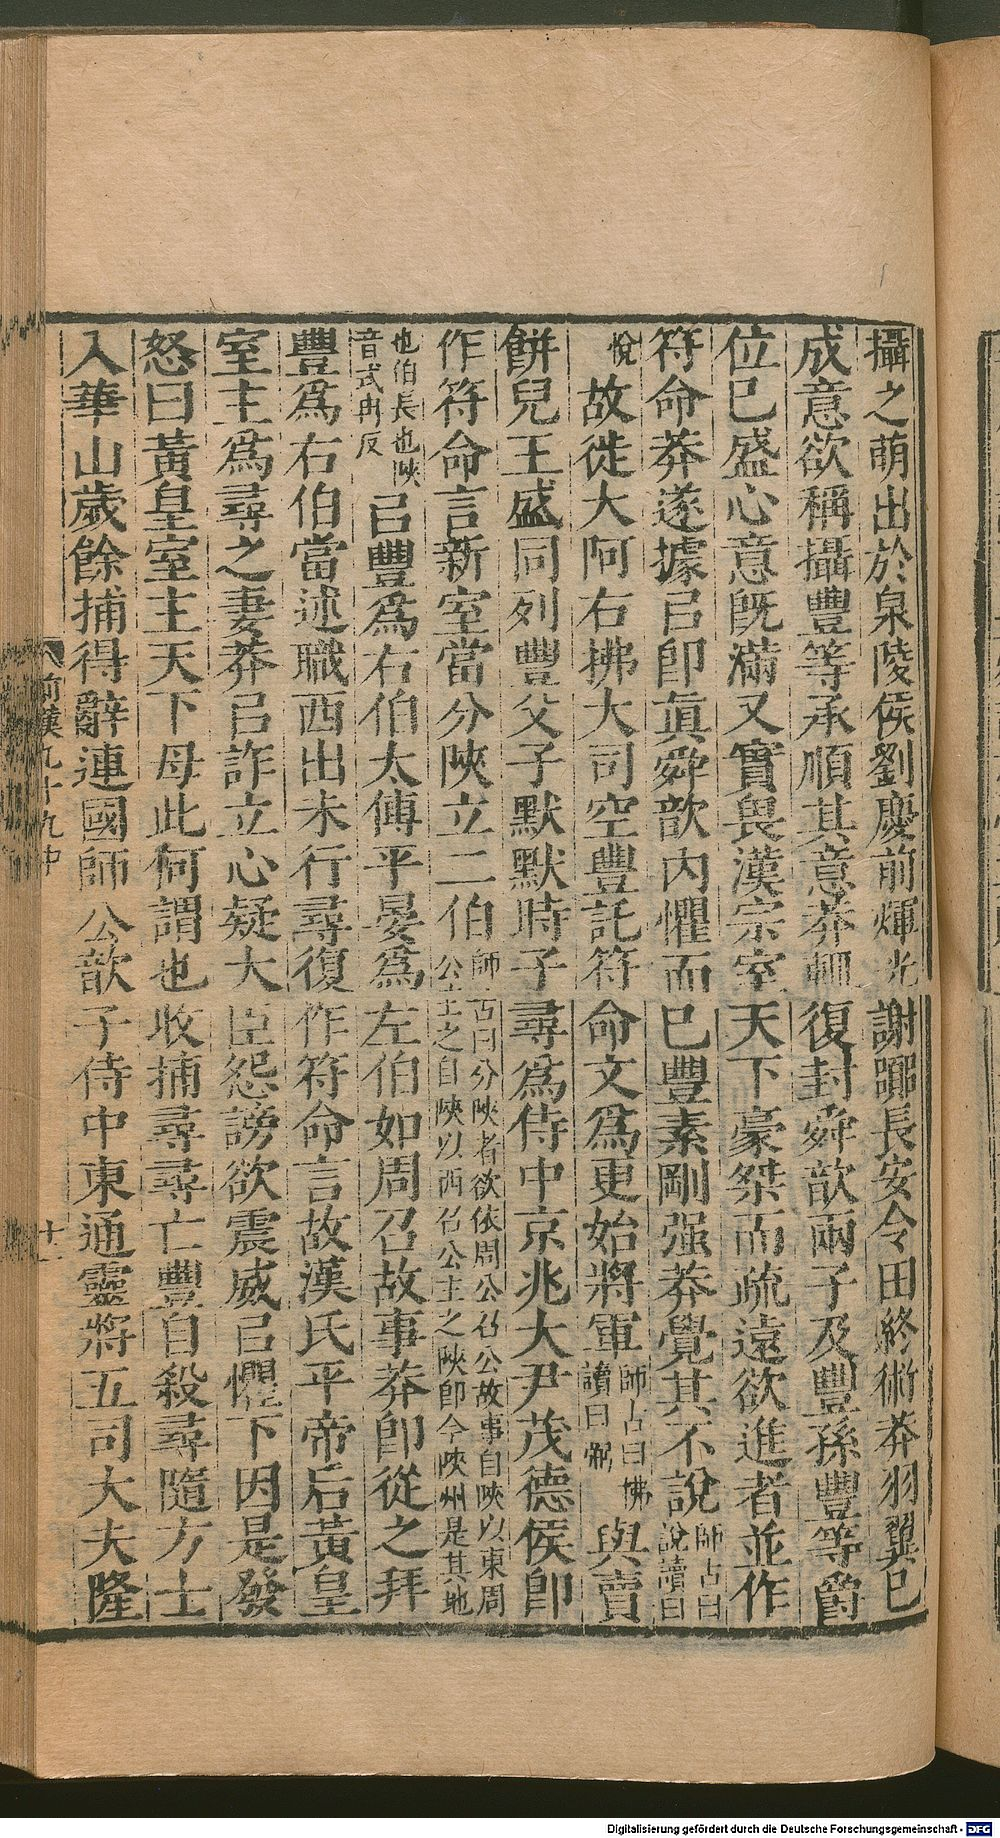 攝之萌出於泉陵侯劉慶前煇光謝囂長安令田終術莽羽翼已
成意欲稱攝豐等承順其意莽輒復封舜歆兩子及豐孫豐等爵
位已盛心意旣滿又實畏漢宗室天下豪桀而疏遠欲進者並作
符命莽遂據㠯卽眞舜歆内懼而已豐素剛强莽覺其不說師古曰說讀曰
悅故徙大阿右拂大司空豐託符命文爲更始將軍師古曰拂讀曰弼與賣
餅兒王盛同列豐父子默默時子尋爲侍中京兆大尹茂德侯卽
作符命言新室當分陝立二伯師古曰分陝者欲依周公召公故事自陝以東周公主之自陝以西召公主之陝卽今陝州是其地
也伯長也陝音式冉反㠯豐爲右伯太傅平晏爲左伯如周召故事莽卽從之拜
豐爲右伯當述職西出未行尋復作符命言故漢氏平帝后黃皇
室主爲尋之妻莽㠯詐立心疑大臣怨謗欲震威㠯懼下因是發
怒曰黃皇室主天下母此何謂也收捕尋尋亡豐自殺尋隨方士
入華山歲餘捕得辭連國師公歆子侍中東通靈將五司大夫隆
前漢九十九中
十一
Digitalisierung gefördert durch die Deutsche Forschungsgemeinschaft - DFG